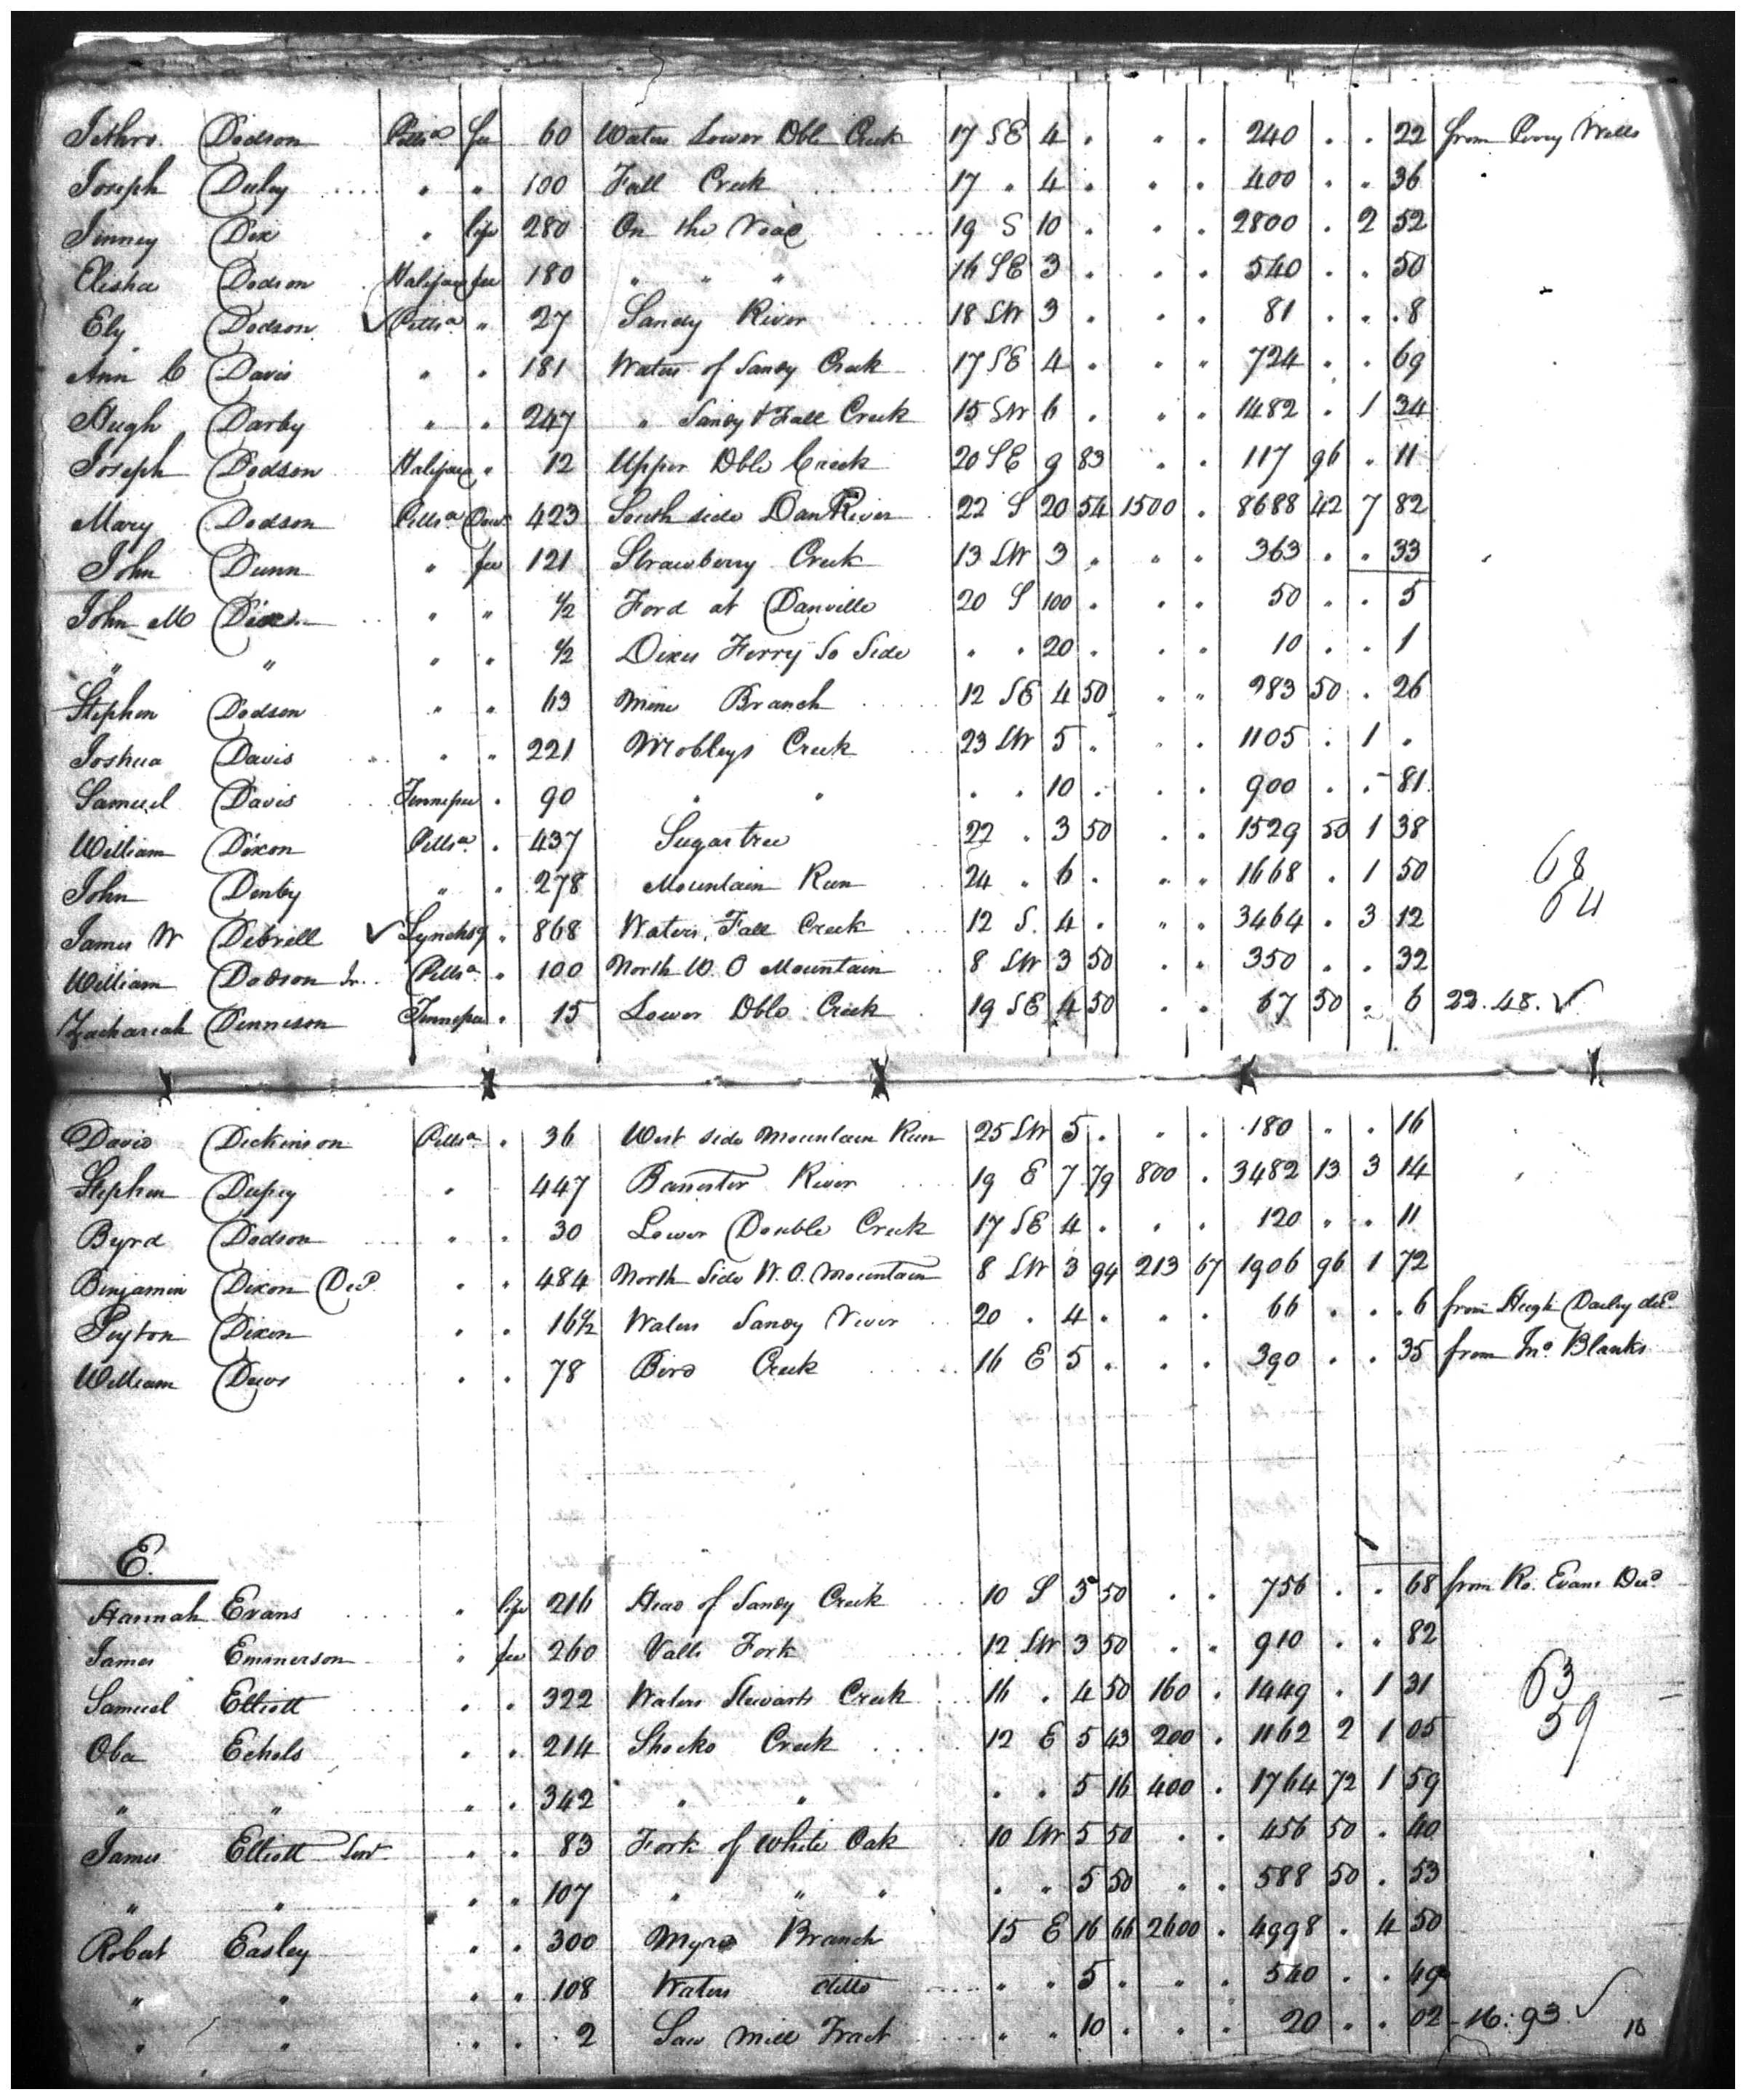 Jethro Dodson Pittsa fee 60 Waters Lower Dble Creek 17 SE 4 . " . 240 . . 22 from Perry Wells
Joseph Daley " " 100 Fall Creek 17 " 4 . " . 400 . " 36
Jinney Dix " life 280 On the Road 19 S 10 . " . 2800 . 2 52
Elisha Dodson Halifax fee 180 " " " 16 SE 3 . . . 540 . . 50
Ely Dodson ✓ Pittsa " 27 Sandy River 18 SW 3 . . . 81 . . 8
Ann C Davis " " 181 Waters of Sandy Creek 17 SE 4 . " " 724 . . 69
Hugh Darby " " 247 " Sandy & Fall Creek 15 SW 6 . " . 1482 . 1 34
Joseph Dodson Halifax " 12 Upper Dble Creek 20 SE 9 83 " . 117 96 " 11
Mary Dodson Pittsa Dowr 423 South side Dan River 22 S 20 54 1500 . 8688 42 7 82
John Dunn " fee 121 Strawberry Creek 13 SW 3 . " . 363 . . 33
John M Dix " " 1/2 Ford at Danville 20 S 100 . " . 50 . . 5
" " " " 1/2 Dixes Ferry So Side . . 20 . . . 10 . . 1
Stephen Dodson " " 63 Mine Branch 12 SE 4 50 " " 283 50 . 26
Joshua Davis " " 221 Mobleys Creek 23 SW 5 . . . 1105 . 1 .
Samuel Davis Tennessee . 90 " " . . 10 . . . 900 . . 81
William Dixon Pittsa . 437 Sugartree 22 . 3 50 . . 1529 50 1 38
John Denby " . 278 Mountain Run 24 . 6 . " " 1668 . 1 50 68
64
James W Dibrell ✓ Lynchbg " 868 Waters Fall Creek 12 S. 4 . " " 3464 . 3 12
William Dodson Jr. Pittsa . 100 North W. O Mountain 8 SW 3 50 . . 350 . . 32
Zachariah Dennison Tennessee . 15 Lower Dble Creek 19 SE 4 50 . . 67 50 . 6 22.48. ✓
David Dickinson Pittsa . 36 West side Mountain Run 25 SW 5 . " . 180 " . 16
Stephen Dupey " 447 Banister River 19 E 7 79 800 . 3482 13 3 14
Byrd Dodson " . 30 Lower Double Creek 17 SE 4 . . . 120 " . 11
Benjamin Dixon Decd . . 484 North Side W. O. Mountain 8 SW 3 94 213 67 1906 96 1 72
Peyton Dixon . . 16 1/2 Waters Sandy River 20 . 4 . " . 66 . . 6 from Hugh Dailey decd
William Dews . . 78 Bird Creek 16 E 5 . . . 390 . . 35 from Jno. Blanks
E.
Hannah Evans " life 216 Head of Sandy Creek 10 S 3 50 . . 756 . . 68 from Ro. Evans Decd
James Emmerson " fee 260 Valls Fork 12 SW 3 50 . . 910 . . 82
Samuel Elliott . . 322 Waters Stewarts Creek 16 . 4 50 160 . 1449 . 1 31 63
59
Oba Echols . . 214 Shocko Creek 12 E 5 43 200 . 1162 2 1 05
" " . . 342 " " . . 5 16 400 . 1764 72 1 59
James Elliott Senr . . 83 Fork of White Oak 10 SW 5 50 . . 456 50 . 40
" " . . 107 " " " . . 5 50 . . 588 50 . 53
Robert Easley . . 300 Myra Branch 15 E 16 66 2600 . 4998 . 4 50
" " . . 108 Waters ditto . . 5 . " . 540 . . 49
" " . . 2 Saw Mill Tract . . 10 . . . 20 . . 02 16:93 ✓ 10